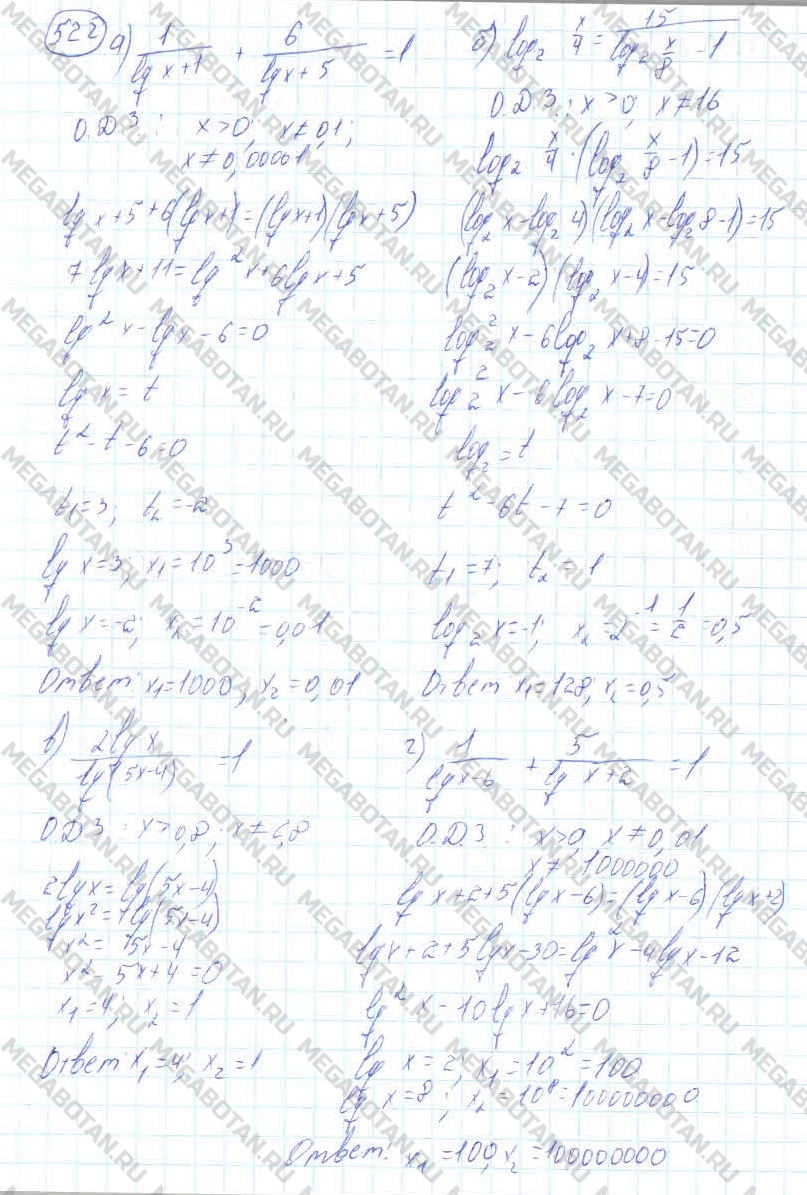 522
а) 1/(lg x+1) + 6/(lg x+5) = 1
О.Д.З: x>0; x≠0,1;
x≠0,00001
lg x+5+6(lg x+1)=(lg x+1)(lg x+5)
7lg x+11=lg²x+6lg x+5
lg²x-lg x-6=0
lg x=t
t²-t-6=0
t₁=3; t₂=-2
lg x=3; x₁=10³=1000
lg x=-2; x₂=10⁻²=0,01
Ответ: x₁=1000, x₂=0,01
б) log₂ x/4 = 15/(log₂ x/8 - 1)
О.Д.З.: x>0; x≠16
log₂ x/4 · (log₂ x/8 - 1)=15
(log₂ x-log₂ 4)(log₂ x-log₂ 8-1)=15
(log₂ x-2)(log₂ x-4)=15
log₂² x-6log₂ x+8-15=0
log₂² x-6log₂ x-7=0
log₂=t
t²-6t-7=0
t₁=7; t₂=-1
log₂ x=-1; x₂=2⁻¹=1/2=0,5
Ответ x₁=128; x₂=0,5
в) 2lg x/lg(5x-4) =1
О.Д.З: x>0,8; x≠
2lg x=lg(5x-4)
lg x²=lg(5x-4)
x²=5x-4
x²-5x+4=0
x₁=4; x₂=1
Ответ: x₁=4; x₂=1
г) 1/(lg x-6) + 5/(lg x+2) =1
О.Д.З: x>0, x≠0,01
x≠1000000
lg x+2+5(lg x-6)=(lg x-6)(lg x+2)
lg x+2+5lg x-30=lg²x-4lg x-12
lg²x-10lg x+16=0
lg x=2; x₁=10²=100
lg x=8; x₂=10⁸=100000000
Ответ: x₁=100, x₂=100000000
MEGABOTAN.RU